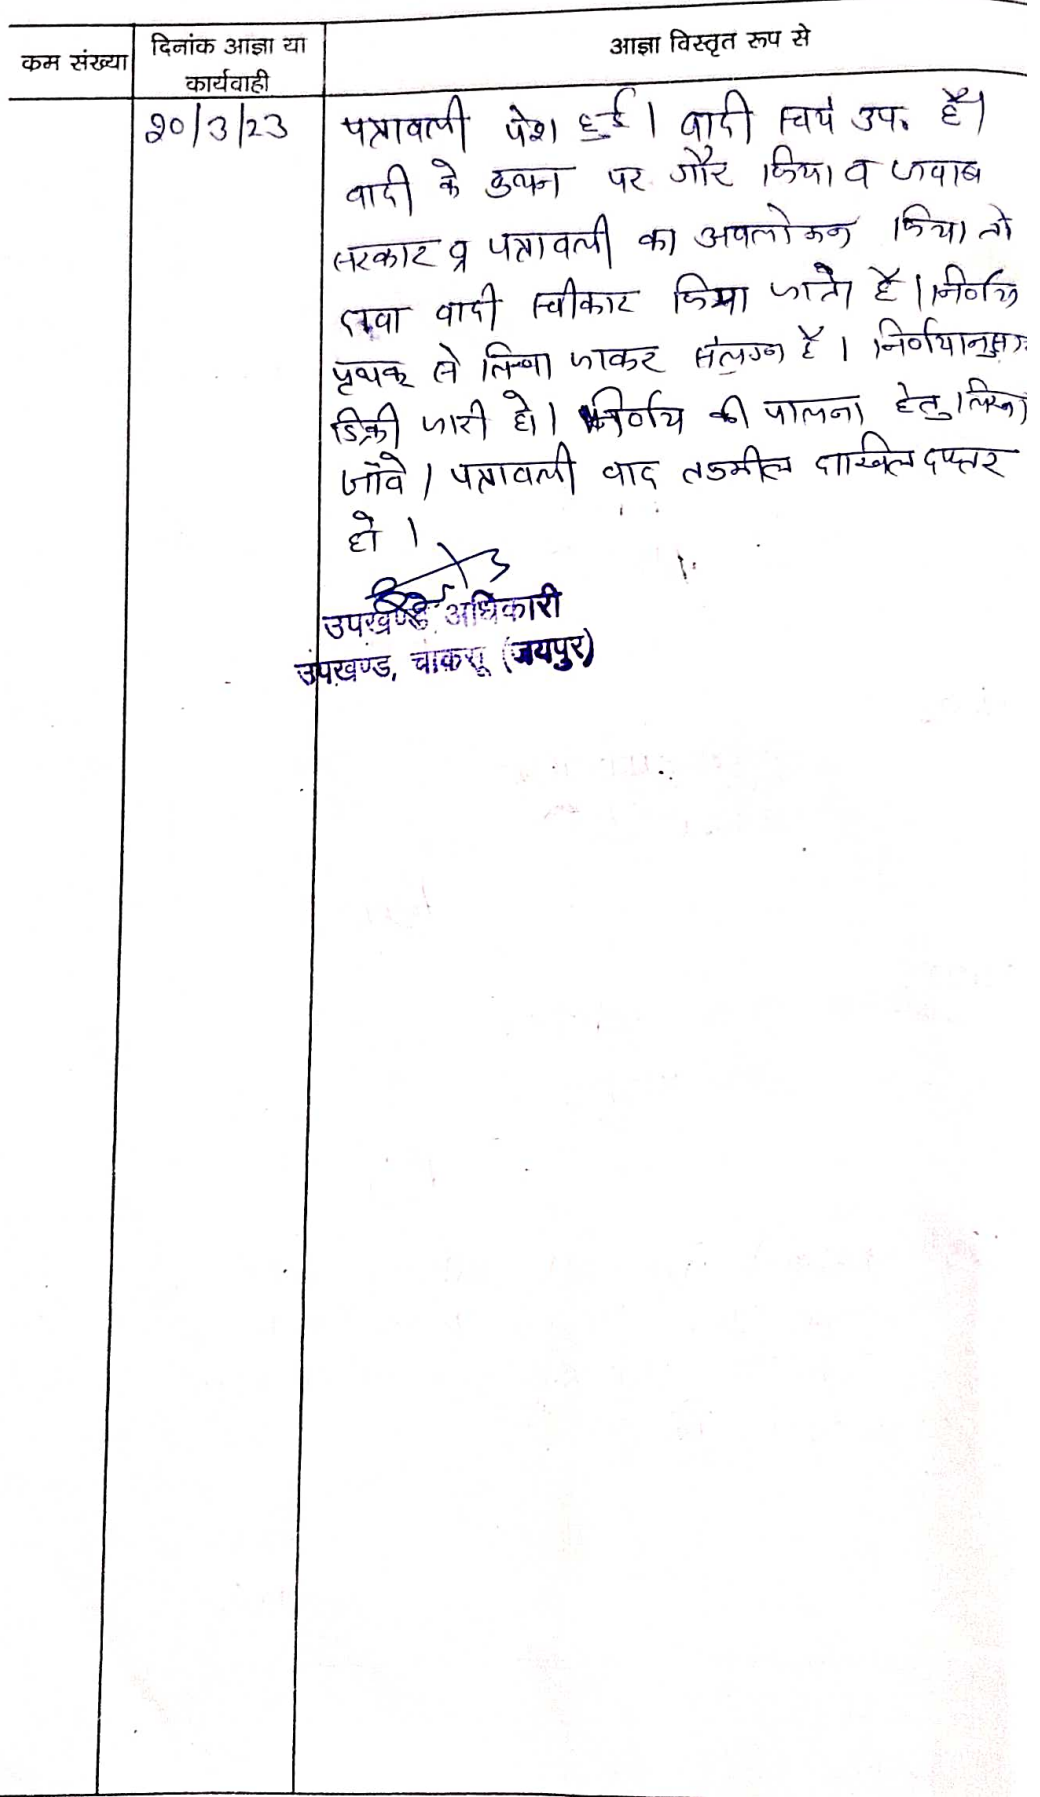 कम संख्या
दिनांक आज्ञा या
कार्यवाही
आज्ञा विस्तृत रूप से
20/3/23
पत्रावली पेश हुई। वादी स्वयं उप. है।
वादी के कथन पर गौर किया व जवाब
सरकार व पत्रावली का अवलोकन किया तो
दावा वादी स्वीकार किया जाता है। निर्णय
पृथक से लिखा जाकर संलग्न है। निर्णयानुसार
डिक्री जारी हो। निर्णय की पालना हेतु लिखा
जावे। पत्रावली बाद तकमील दाखिल दफ्तर
हो।
उपखण्ड अधिकारी
उपखण्ड, चाकसू (जयपुर)